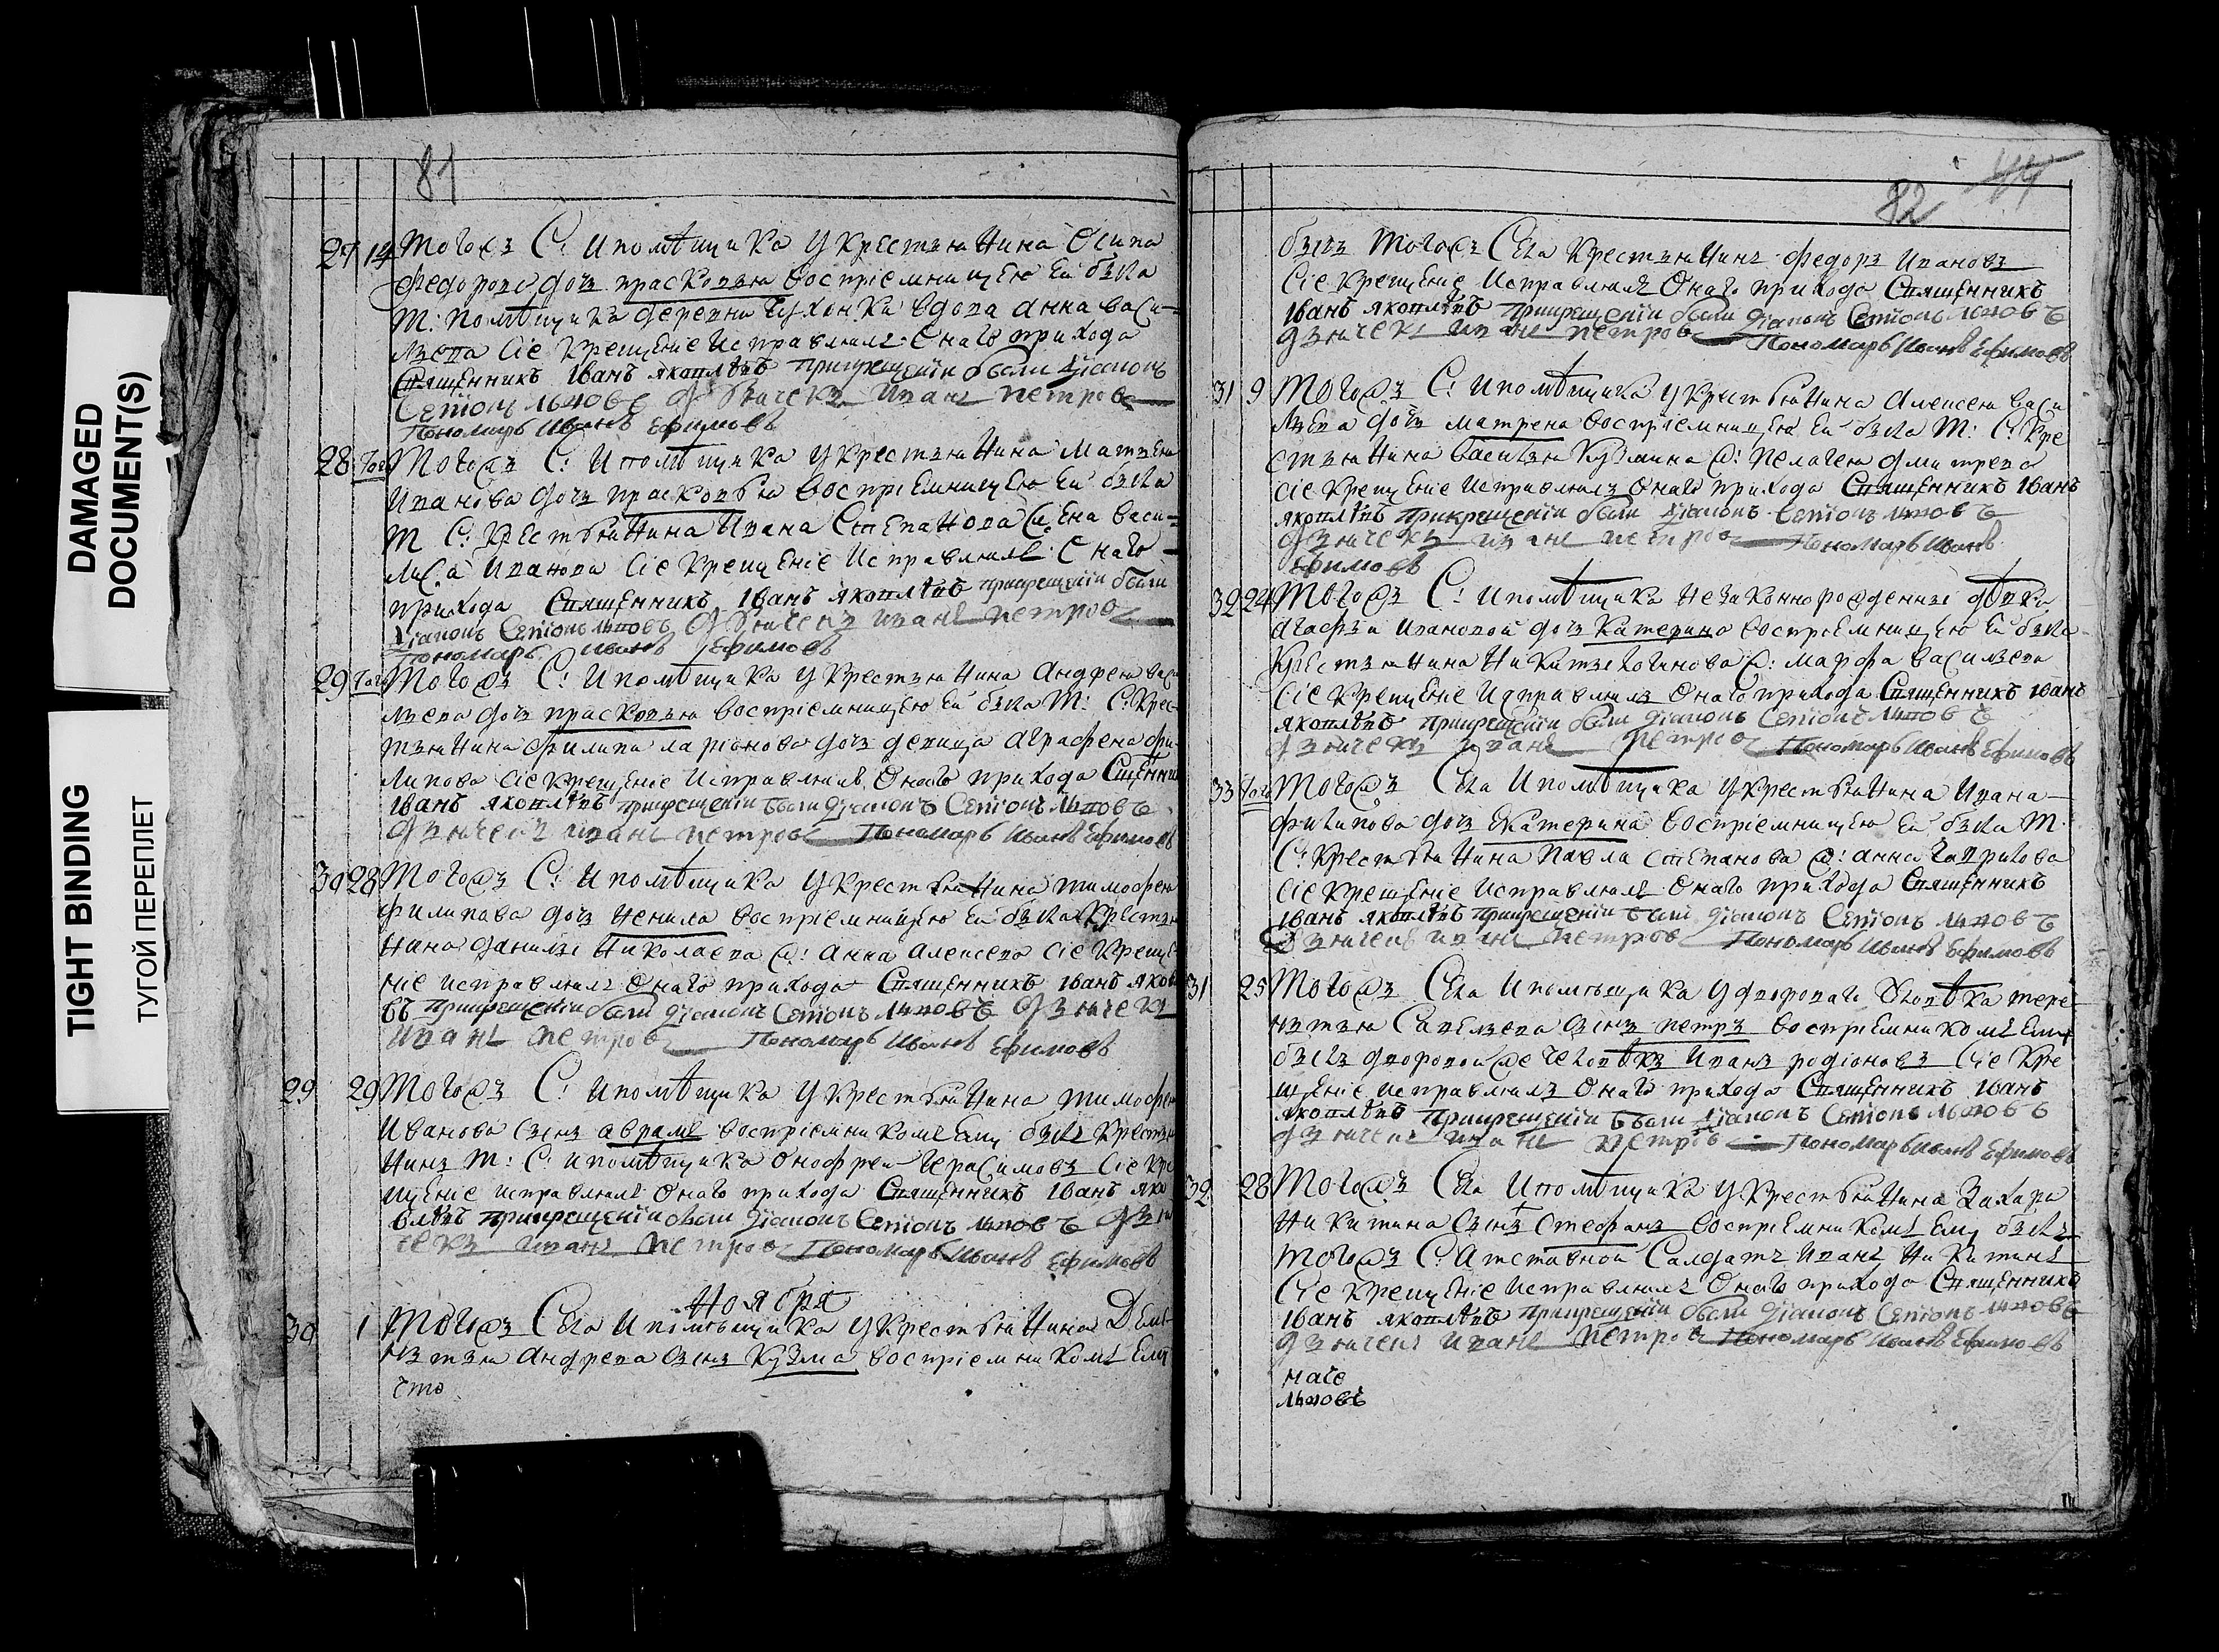 DAMAGED
DOCUMENT(S)
TIGHT BINDING
ТУГОЙ ПЕРЕПЛЕТ
81
27 14 Тогожъ С: и помѣщика у крестьянина Осипа
Федорова дочь прасковья воспріемницею ей была
т: помѣщика деревни вдова анна васи-
льева сіе крещеніе исправлялъ онаго прихода
Священникъ Iванъ яковлевъ прикрещеніи были діаконъ
Семіонъ львовъ дьячекъ иванъ петровъ
Пономарь Иванъ Ефимовъ
28 Того Тогожъ С: и помѣщика у крестьянина Матвея
иванова дочь прасковья воспріемницею ей была
т С: крестьянина ивана Степанова жена васи-
лиса иванова сіе крещеніе исправлялъ онаго
прихода Священникъ Iванъ яковлевъ прикрещеніи были
діаконъ Семіонъ львовъ дьячекъ иванъ петровъ
Пономарь Иванъ Ефимовъ
29 Того Тогожъ С: и помѣщика у крестьянина Андрея васи
льева дочь прасковья воспріемницею ей была т: С: крес-
тьянина филипа ларіонова дочь девица аграфена фи-
липова сіе крещеніе исправлялъ Онаго прихода Сщенни
Iванъ яковлевъ прикрещеніи были діаконъ Семіонъ львовъ
дьячекъ иванъ петровъ Пономарь Иванъ Ефимовъ
30 28 Тогожъ С: и помѣщика у крестьянина тимофея
филипова дочь ненила воспріемницею ей была крестья
нина данилы николаева ж: анна алексева сіе креще
ніе исправлялъ Онаго прихода Священникъ Iванъ яковле
въ прикрещеніи были діаконъ Семіонъ львовъ дьячекъ
иванъ петровъ Пономарь Иванъ Ефимовъ
29 29 Тогожъ С: и помѣщика у крестьянина тимофея
Иванова сынъ аврамъ воспріемникомъ ему былъ крестья
нинъ т: С: и помѣщика Онофреи герасимовъ сіе кре
щеніе исправлялъ Онаго прихода Священникъ Iванъ яко
влевъ прикрещеніи были діаконъ Семіонъ львовъ дья
чекъ иванъ петровъ Пономарь Иванъ Ефимовъ
Ноября
30 1 Тогожъ Села и помѣщика у крестьянина
андрева сынъ Кузма воспріемникомъ ему
82 44
былъ тогожъ Села крестьянинъ федоръ ивановъ
сіе крещеніе исправлялъ Онаго прихода Священникъ
Iванъ яковлевъ прикрещеніи были діаконъ Семіонъ львовъ
дьячекъ иванъ петровъ Пономарь Иванъ Ефимовъ
31 9 Тогожъ С: и помѣщика у крестьянина Алексея васи
льева дочь матрена воспріемницею ей была т: С: кре
стьянина василья Кузмина ж: пелагея дмитрева
сіе крещеніе исправлялъ Онаго прихода Священникъ Iванъ
яковлевъ прикрещеніи были діаконъ Семіонъ львовъ
дьячекъ иванъ петровъ Пономарь Иванъ
Ефимовъ
32 24 Тогожъ С: и помѣщика незаконнорожденны дѣвки
агафьи ивановой дочь Катерина воспріемницею ей была
крестьянина никиты логинова ж: марфа васильева
сіе крещеніе исправлялъ Онаго прихода Священникъ Iванъ
яковлевъ прикрещеніи были діаконъ Семіонъ львовъ
дьячекъ иванъ петровъ Пономарь Иванъ Ефимовъ
33 Того Тогожъ Села и помѣщика у крестьянина ивана
филипова дочь Екатерина воспріемницею ей была т
С: крестьянина павла степанова ж: анна гаврилова
сіе крещеніе исправлялъ Онаго прихода Священникъ
Iванъ яковлевъ прикрещеніи были діаконъ Семіонъ львовъ
дьячекъ иванъ петровъ Пономарь Иванъ Ефимовъ
31 25 Тогожъ Села и помѣщика у двороваго человѣка тере
нтья Савельева сынъ петръ воспріемникомъ ему
былъ дворовой же человѣкъ иванъ родіоновъ сіе кре
щеніе исправлялъ Онаго прихода Священникъ Iванъ
яковлевъ прикрещеніи были діаконъ Семіонъ львовъ
дьячекъ иванъ петровъ Пономарь Иванъ Ефимовъ
32 28 Тогожъ Села и помѣщика у крестьянина Захара
никитина сынъ Стефанъ воспріемникомъ ему былъ
тогожъ С: атставной Салдатъ иванъ никитинъ
сіе крещеніе исправлялъ Онаго прихода Священникъ
Iванъ яковлевъ прикрещеніи были діаконъ Семіонъ львовъ
дьячекъ иванъ петровъ Пономарь Иванъ Ефимовъ
львовъ